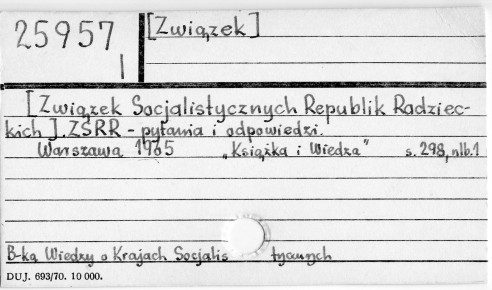 25957
I
[Związek]
[Związek Socjalistycznych Republik Radziec-
kich]. ZSRR - pytania i odpowiedzi.
Warszawa 1965 „Książka i Wiedza" s. 298, nlb. 1
B-ka Wiedzy o Krajach Socjalis tycznych
DUJ. 693/70. 10 000.